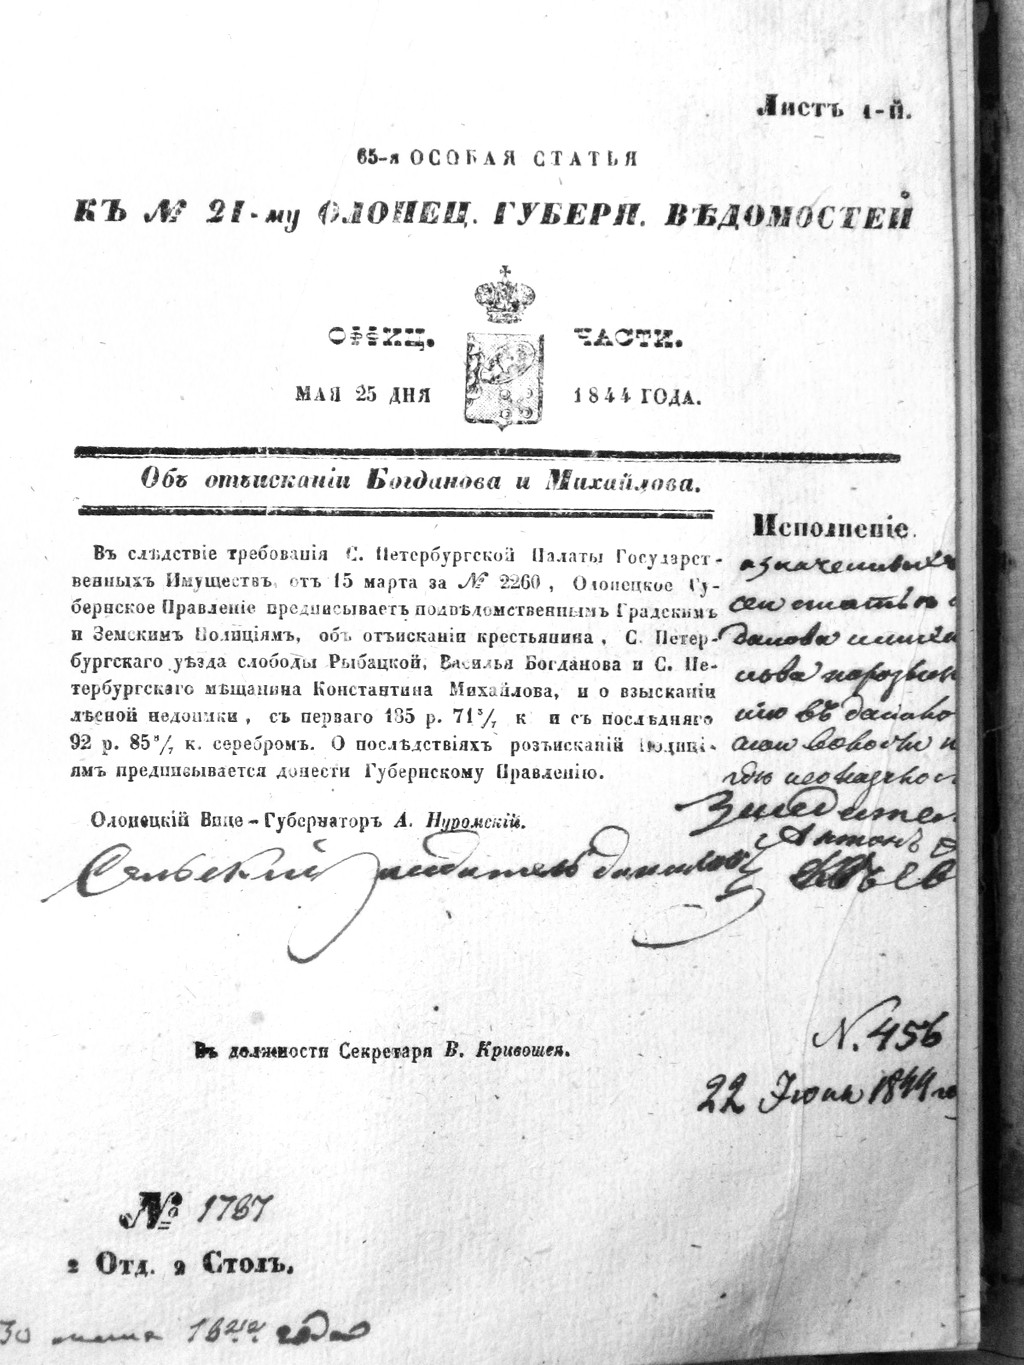 Листъ 1-й.
65-я ОСОБАЯ СТАТЬЯ
КЪ № 21-му ОЛОНЕЦ. ГУБЕРН. ВѢДОМОСТЕЙ
ОФФИЦ. ЧАСТИ.
МАЯ 25 ДНЯ 1844 ГОДА.
Объ отъисканіи Богданова и Михайлова.
Въ слѣдствіе требованія С. Петербургской Палаты Государст-
венныхъ Имуществъ, отъ 15 марта за № 2260, Олонецкое Гу-
бернское Правленіе предписываетъ подвѣдомственнымъ Градскимъ
и Земскимъ Полиціямъ, объ отъисканіи крестьянина, С. Петер-
бургскаго уѣзда слободы Рыбацкой, Василья Богданова и С. Пе-
тербургскаго мѣщанина Константина Михайлова, и о взысканіи
лѣсной недоимки, съ перваго 185 р. 71 ³/₇ к и съ послѣдняго
92 р. 85 ⁵/₇ к. серебромъ. О послѣдствіяхъ розъисканій Полиці-
ямъ предписывается донести Губернскому Правленію.
Олонецкій Вице-Губернаторъ А. Нуромскій.
Исполненіе.
сей статьи
данова и миха
въ
Антонъ
Сельскій
Въ должности Секретаря В. Кривошея.
N. 456
22 Июня 1844 го
№ 1787
2 Отд. 2 Столъ.
30 1844 года